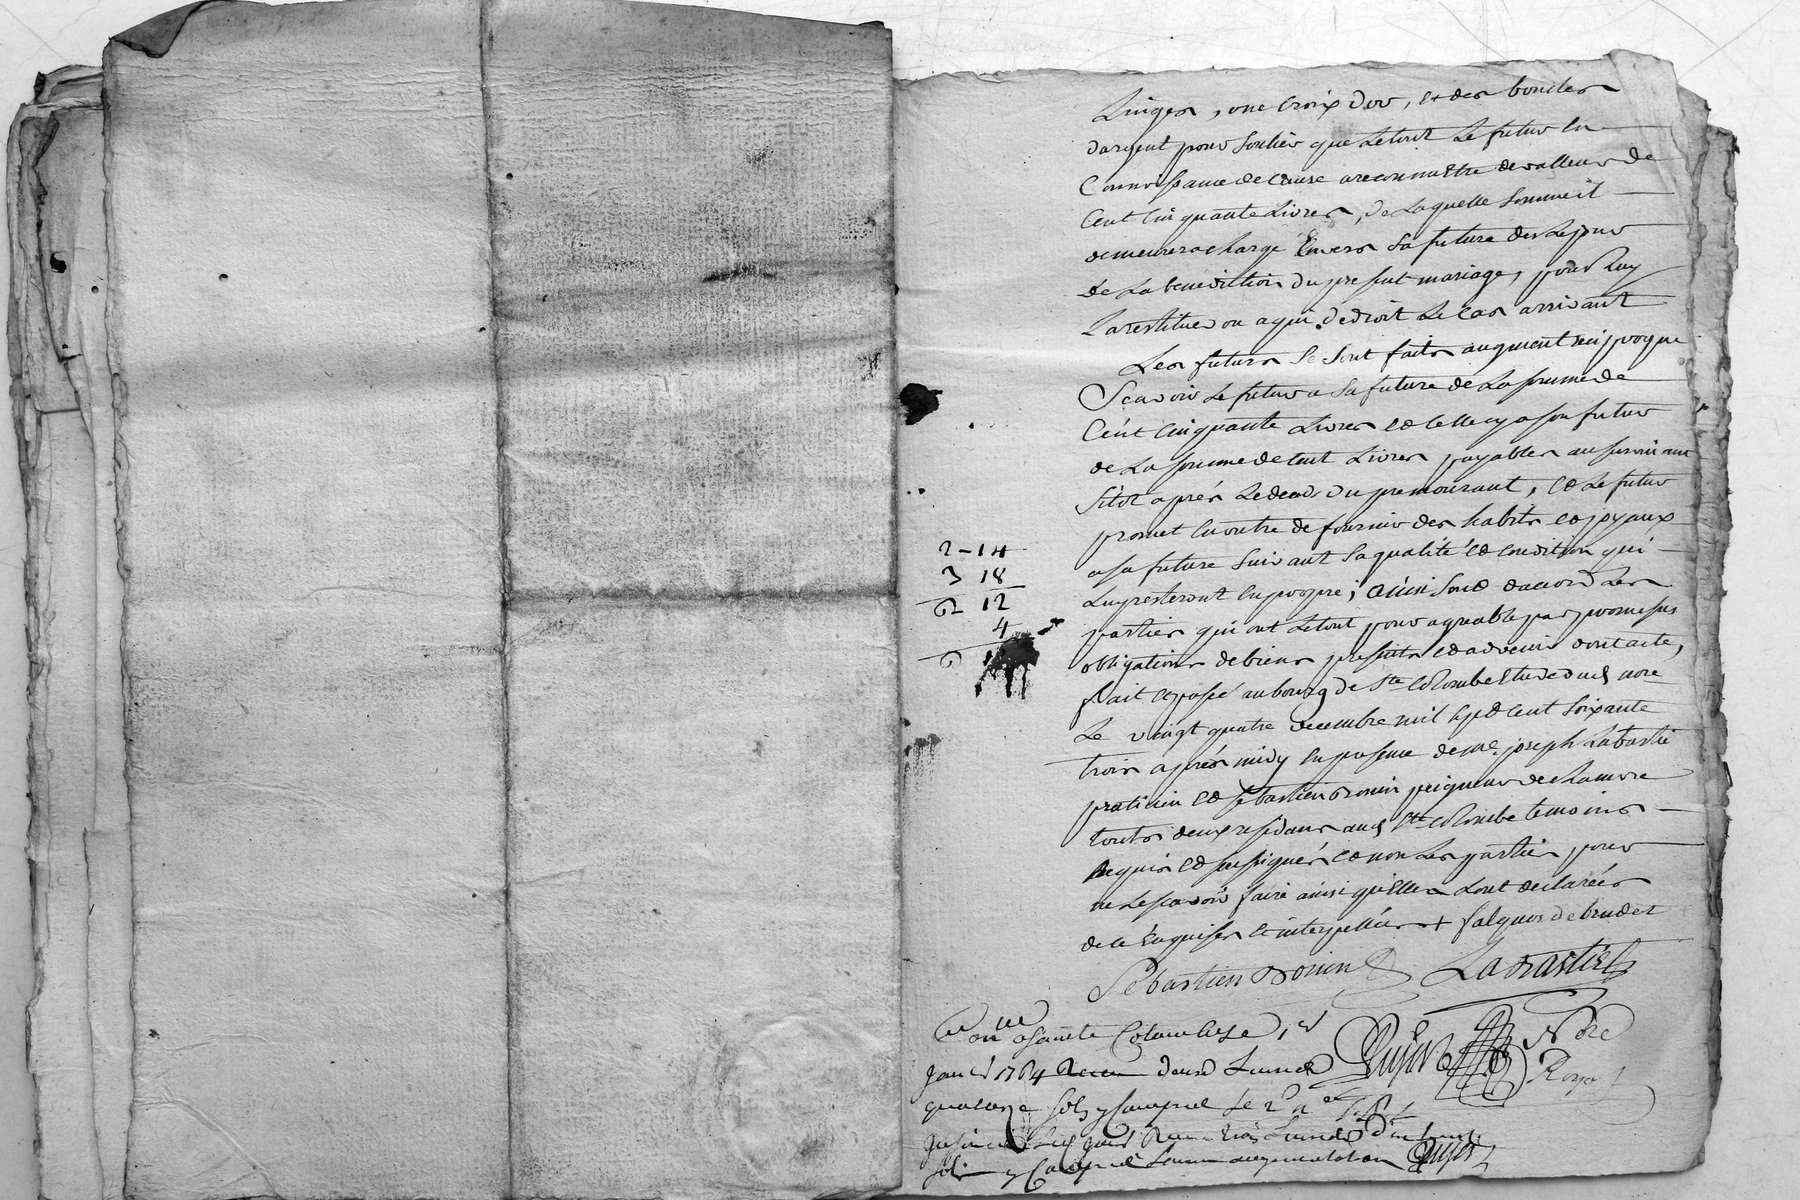 Linges, une Croix d'or, et des boucles
dargent pour souliers que Letout Le futur En
Connoissance de Cause areconnu Etre de valleur de
Cent Cinquante Livres, de Laquelle somme il
demeurera charge Envers sa future des Le jour
de La benediction du present mariage, pour Luy
La restituer ou a qui de droit Le Cas arrivant
Les futurs se sont faits augment reciproque
Scavoir Le futur a sa future de La somme de
Cent Cinquante Livres et celle cy a son futur
de La somme de Cent Livres payables au survivant
sitot après Le deces du premourant, et Le futur
promet En outre de fournir des habits et joyaux
a sa future suivant sa qualité et condition qui
Luy resteront En propre; ainsi sont daccord Les
parties qui ont Le tout pour agreable par promesses
obligations de biens presents et advenir dont acte,
fait et passé au bourg de Ste Colombe Etude dud nore
Le vingt quatre decembre mil sept cent soixante
trois après midy En presence de me joseph Labastie
praticien et sebastien Donin peigneur de chanvre
touts deux residans aud Ste Colombe temoins
requis et soussignés et non Les parties pour
ne Le scavoir faire ainsi qu'Elles L'ont declarées
de ce Enquises et interpellées + falquos de bender
2 - 14
3 18
6 12
4
6
Sebastien Donin Labastie
Con lle a Sainte Colombe Le 1er
Janer 1764 Receu deux Livres
quatorze sols y Compris Le
Nore
Royal